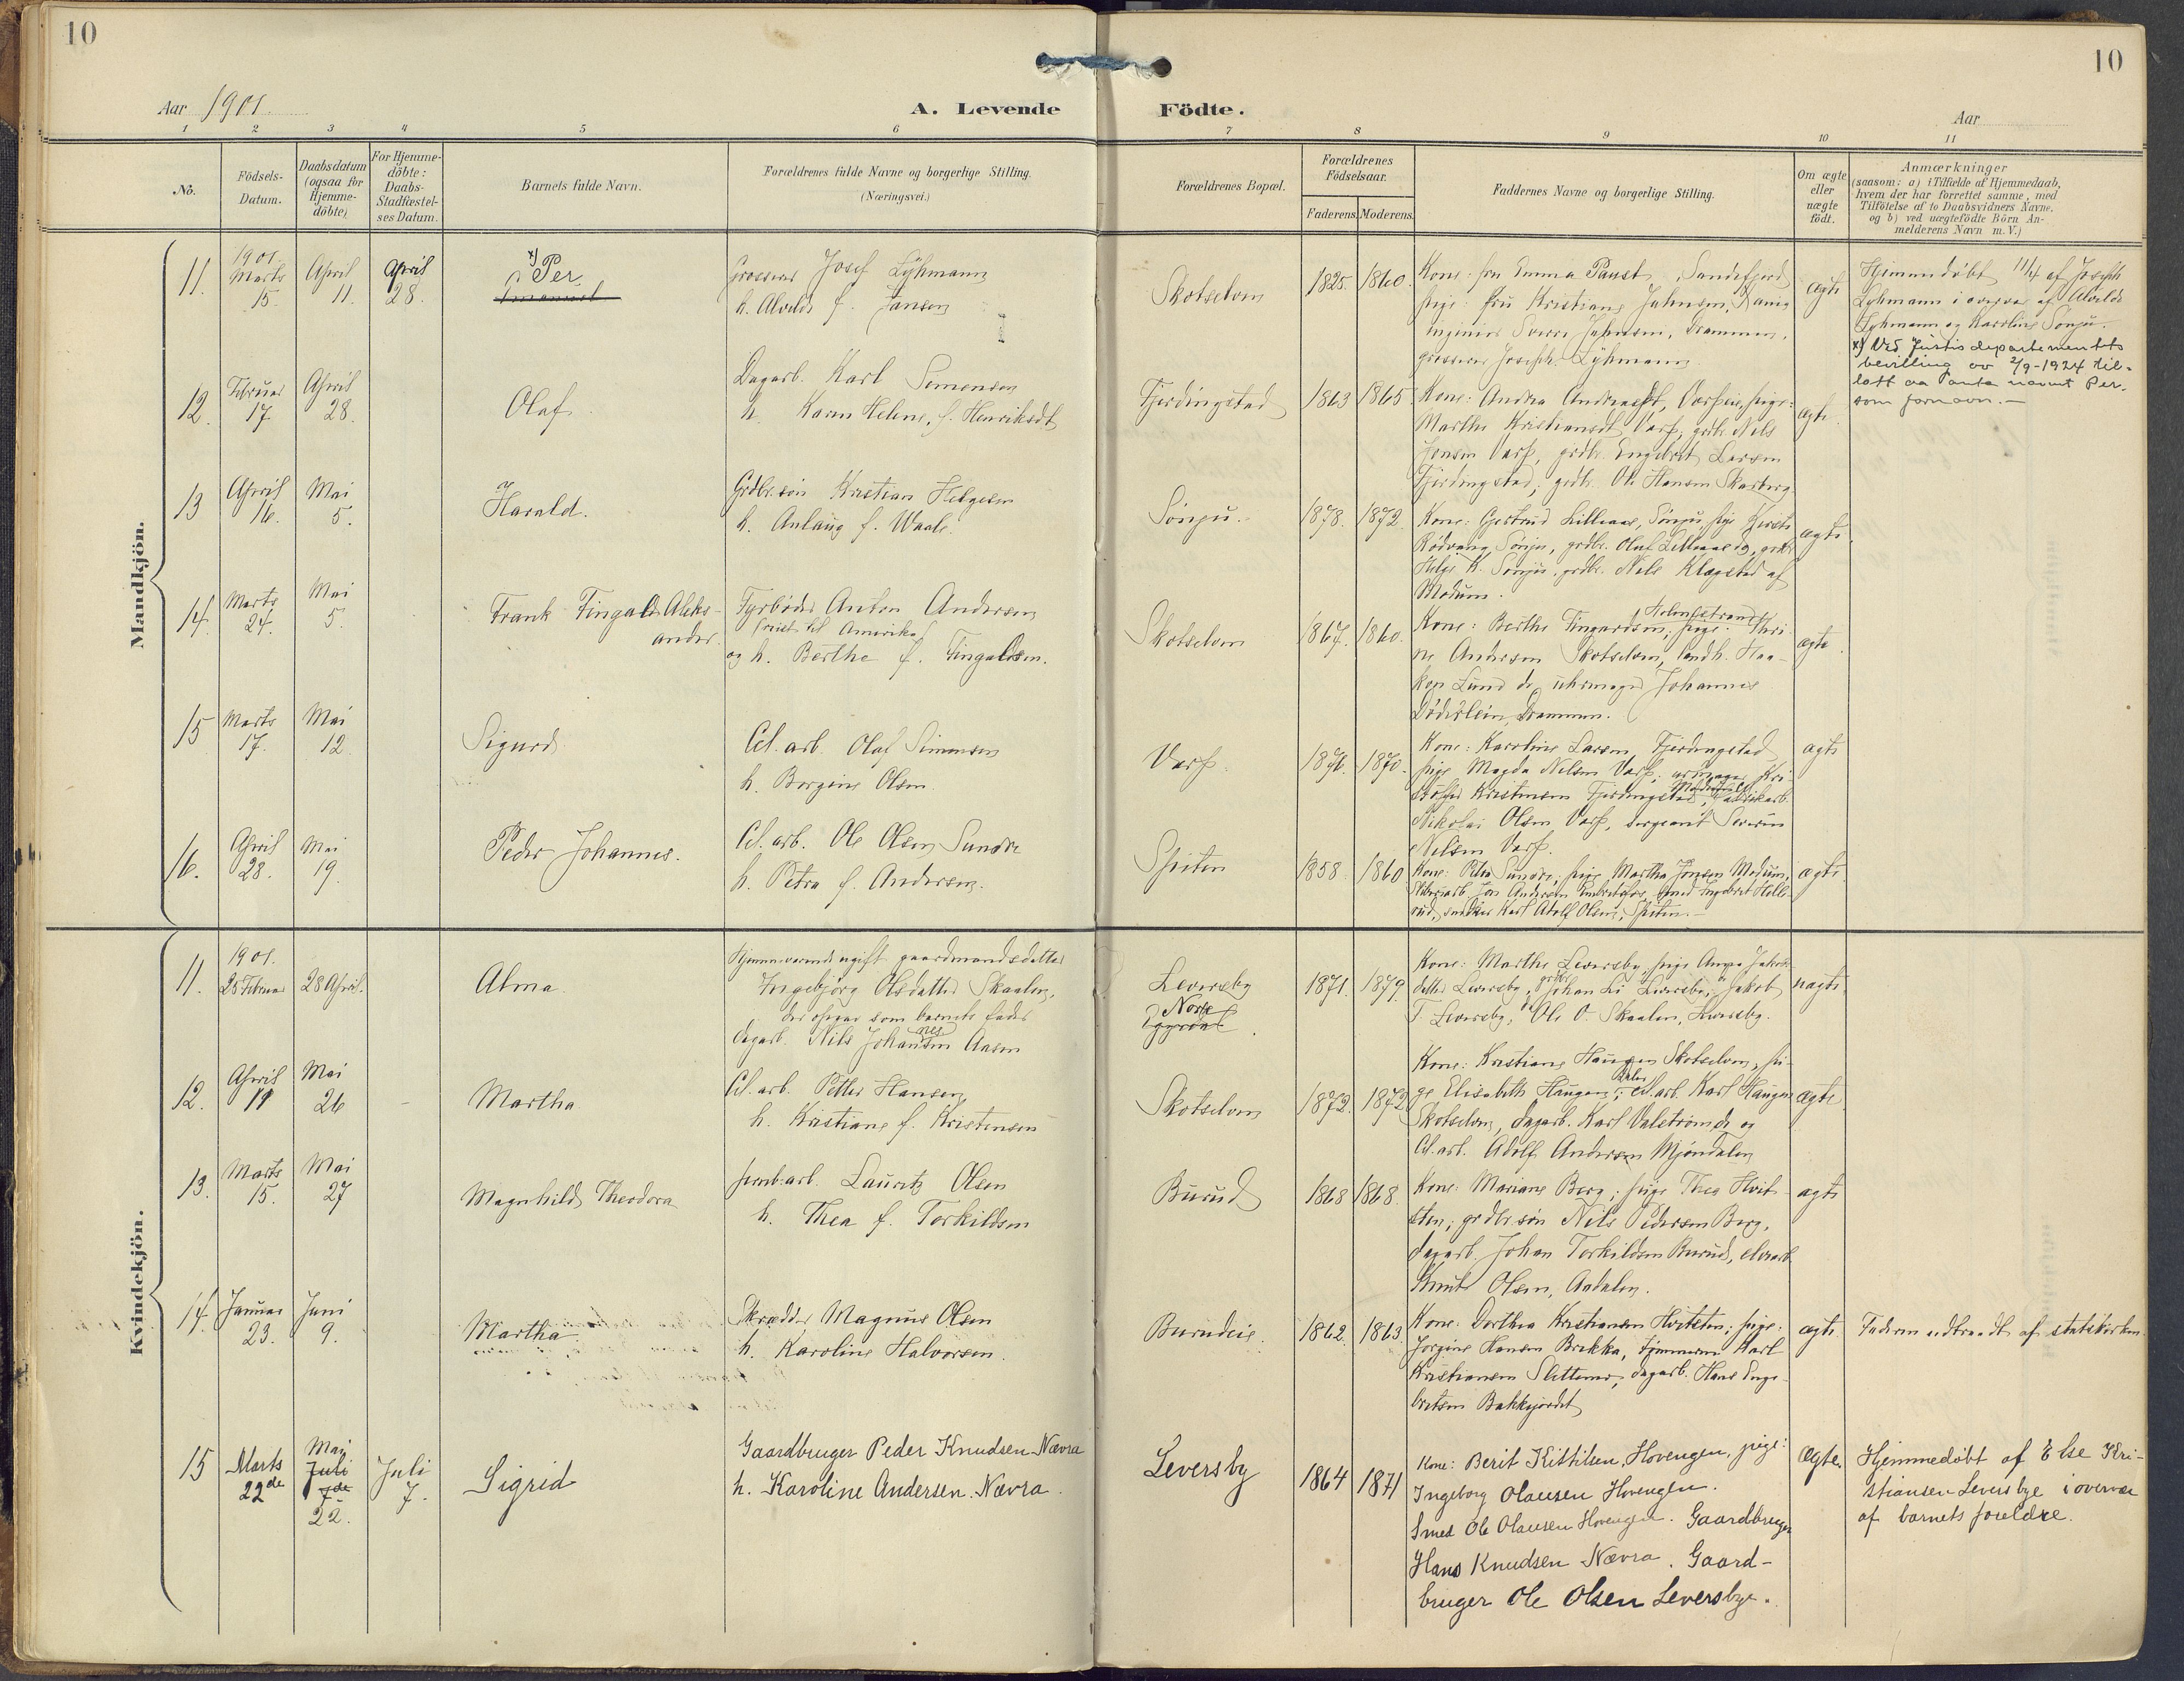 10
10
Aar 1901.
A. Levende
Födte.
Aar
1 2 3 4 5 6 7 8 9 10 11
No.
Födsels-
Datum.
Daabsdatum
(ogsaa for
Hjemme-
döbte).
For Hjemme-
döbte:
Daabs-
Stadfæstel-
ses Datum.
Barnets fulde Navn.
Forældrenes fulde Navne og borgerlige Stilling.
(Næringsvei.)
Forældrenes Bopæl.
Forældrenes
Födselsaar.
Faderens. Moderens.
Faddernes Navne og borgerlige Stilling.
Om ægte
eller
uægte
födt.
Anmærkninger
(saasom: a) i Tilfælde af Hjemmedaab,
hvem der har forrettet samme, med
Tilföielse af to Daabsvidners Navne,
og b) ved uægtefödte Börn An-
melderens Navn m. V.)
Mandkjön.
11.
1901
Marts
15.
April
11.
April
28.
x) Per
Grosserer Josef Lyhmann
h. Alvilde f. Jansen
Skotselven
1825. 1860.
Kone: fru Emma Paust, Sandefjord
pige: fru Kristiane Jahnsen, Dania
ingeniør Sverre Jahnsen, Drammen,
grosserer Joseph Lyhmann
ægte
Hjemmedøbt 11/4 af Joseph
Lyhmann i overvær af Alvilde
Lyhmann og Karoline Sönju.
x) Ved Justisdepartementets
bevilling av 2/9-1924 til-
latt aa anta navnet Per
som fornavn.-
12.
Februar
17.
April
28.
Olaf.
Dagarb. Karl Simensen
h. Karen Helene, f. Henriksdt
Fjerdingstad
1863 1865
Kone: Andrea Andreasdt, Varpeie, pige:
Marthe Kristiansdt Varp, grdbr. Nils
Jensen Varp, grdbr. Engebret Larsen
Fjerdingstad, grdbr. Ole Hansen Skarberg.
ægte.
13
April
16.
Mai
5.
Harald.
Grdbr.sön Kristian Helgesen
h. Anlaug f. Waale.
Sönju.
1878. 1872.
Kone: Gjertrud Lilleaas, Sönju, pige Kjersti
Rödvang, Sönju, grdbr. Oluf Lilleaas dg, grdbr.
Helge K. Sönju, grdbr. Nils Klopstad af
Modum.
ægte.
14.
Marts
24.
Mai
5.
Frank Fingald Aleks-
ander.
Fyrböder Anton Andersen
(reist til Amerika)
og h. Berthe f. Fingaldsen.
Skotselven
1867. 1860.
Kone: Berthe Fingardsen, Holmestrand, pige: Thri-
ne Andersen Skotselven, landh. Haa-
kon Lund dg, uhrmager Johannes
Döderlein, Drammen.
ægte.
15
Marts
17.
Mai
12.
Sigurd.
Cel. arb. Olaf Simensen
h. Borgine Olsen.
Varp.
1876. 1870.
Kone: Karoline Larsen, Fjerdingstad
pige Magda Nilsen Varp;
Kristensen Fjerdingstad, fabrikarb.
Nikolai Olsen Varp, sergeant Severin
Nilsen Varp.
ægte
16.
April
28.
Mai
19.
Peder Johannes.
Cel. arb. Ole Olsen Sundre
h. Petra f. Andersen.
Spiten
1858. 1860
Kone: Petra Sundre, pige Martha Jonsen Modum,
Sliberiarb. Jon Andersen Embretsfos, smed Ingebret Helle-
rud, snedker Karl Adolf Olsen, Spiten.-
ægte.
Kvindekjön.
11.
1901.
25 Februar
28 April.
Alma.
Hjemmeværende ugift gaardmandsdatter
Ingebjörg Olsdatter Skaalen,
der opgav som barnets fader
dagarb. Nils Johannesen Aasen
Leversby
Norse
1871. 1879.
Kone: Marthe Leversby, pige Anna Jakobs-
datter Leversby, grdbr. Johan Li Leversby, Jakob
T. Leversby, Ole O. Skaalen, Leversby.
uægte.
12.
April
11
Mai
26
Martha
Cel. arb. Petter Hansen
h. Kristiane f. Kristensen
Skotselven
1872. 1872
Kone: Kristiane Haugen Skotselven, pi-
ge Elisabeth Haugen; Cel. arb. Karl Haugen
Skotselven, dagarb. Karl Valström dg og
Cel. arb. Adolf Andersen Mjöndalen
ægte.
13.
Marts
15.
Mai
27
Magnhild Theodora
Jernb. arb. Lauritz Olsen
h. Thea f. Torkildsen
Burud
1868 1868.
Kone: Mariane Berg; pige Thea Hvit-
sten; grdbr.sön Nils Pedersen Berg,
dagarb. Johan Torkildsen Burud, elevarb
Knut Olsen, Aadalen.
ægte
14.
Januar
23.
Juni
9.
Martha.
Skrædder Magnus Olsen
h. Karoline Halvorsen.
Burudeie.
1862. 1863.
Kone: Dorthea Kristiansen Hvitsten; pige:
Jorgine Hansen Brekka, Tjömmerm. Karl
Kristiansen Slettemo, dagarb. Hans Enge-
bretsen Bakkejordet
ægte.
Faderen udtraadt af statskirken.
15
Marts
22de
Mai
Juli
7de
22.
Juli
7.
Sigrid
Gaardbruger Peder Knudsen Nævra
h. Karoline Andersen. Nævra.
Leversby
1864 1871
Kone: Berit Kittilsen, Hovengen, pige:
Ingeborg Olausen Hovengen.
Smed Ole Olausen Hovengen. Gaardbruger
Hans Knudsen Nævra. Gaard-
bruger Ole Olsen Leversbye.
Ægte.
Hjemmedöbt af Else Kri-
stiansen Leversbye i overvær
af barnets foreldre.